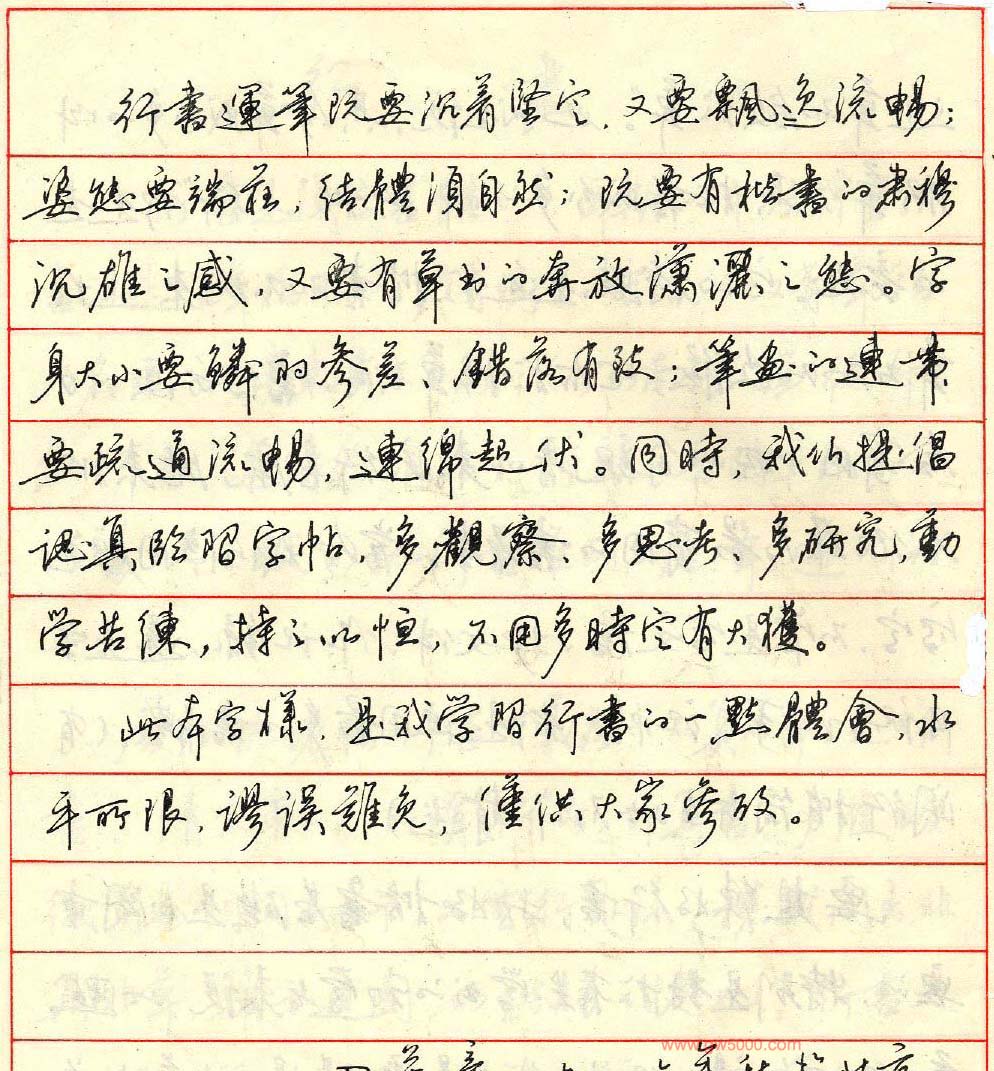 行書運筆既要沉着堅定，又要飄逸流暢；
姿態要端莊，結體須自然；既要有楷書的肅穆
沉雄之感，又要有草书的奔放瀟灑之態。字
身大小要鱗的參差、錯落有致；筆畫的連带
要疏通流暢，連綿起伏。同時，我们提倡
認真臨習字帖，多觀察、多思考、多研究，勤
学苦練，持之以恒，不用多時定有大獲。
此本字樣，是我学習行書的一點體會，水
平所限，謬误難免，僅供大家參攷。
5000.com